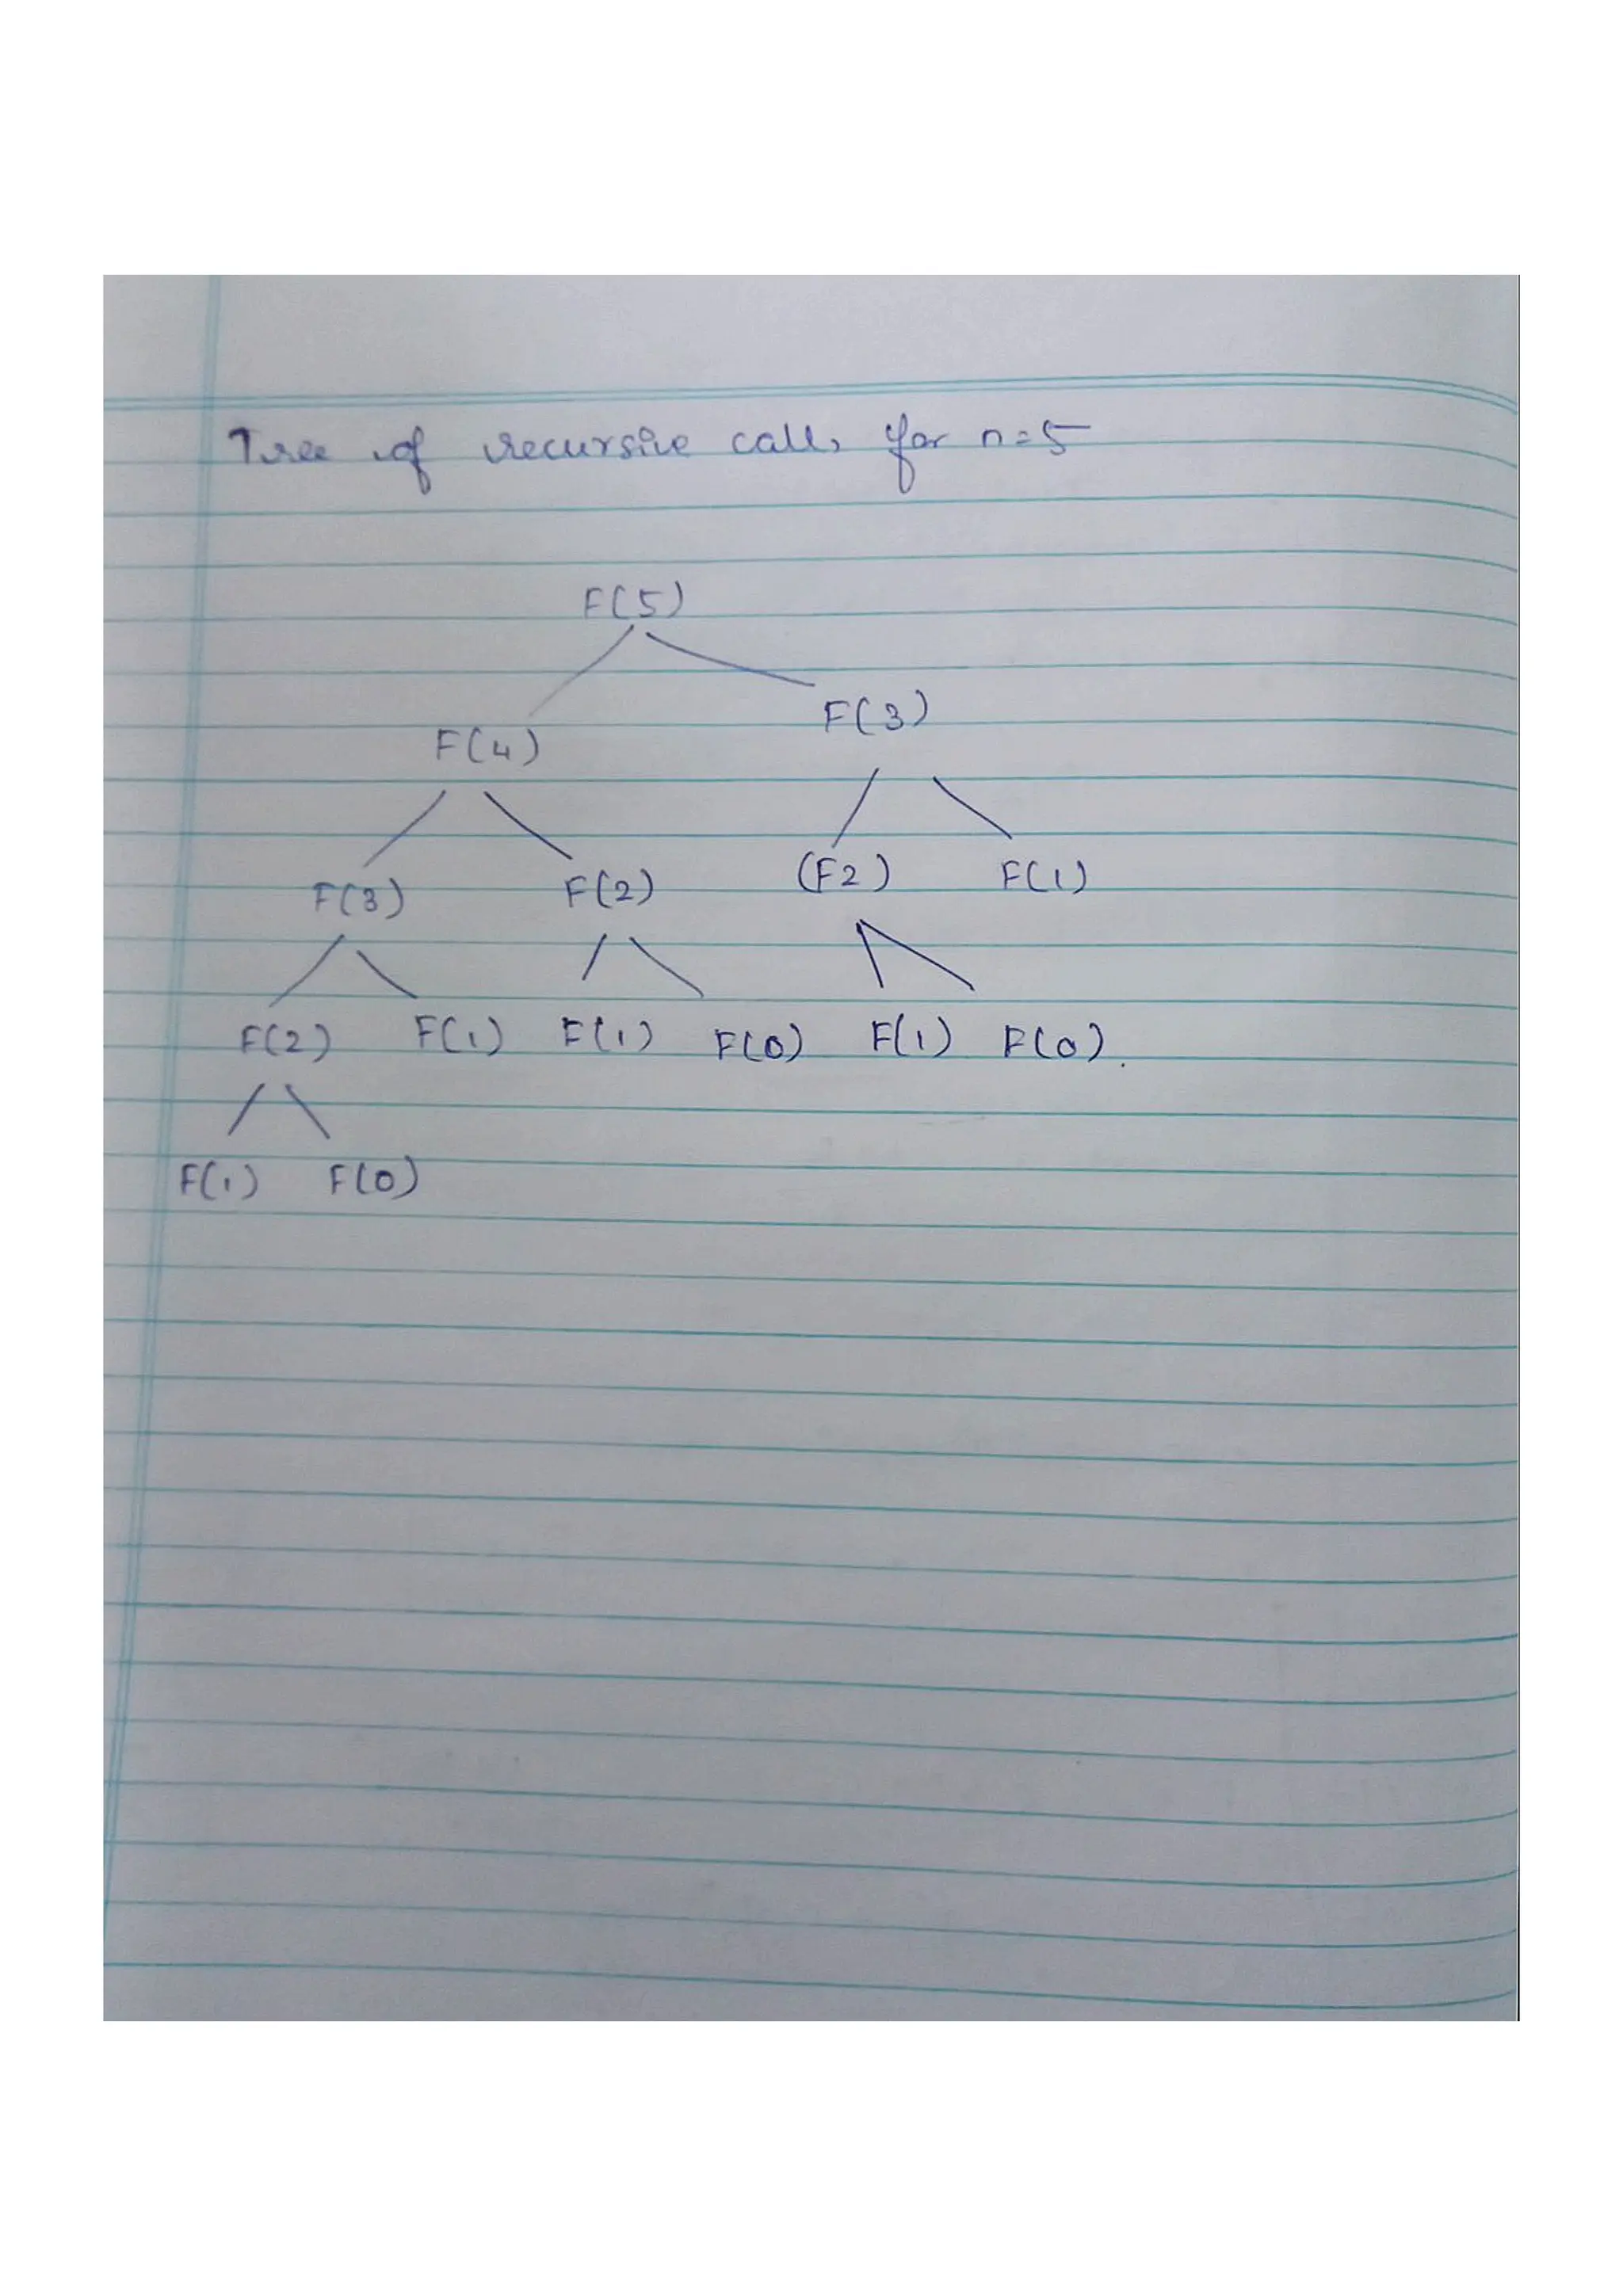 Tree of recursive calls for n=5
F(5)
F(4) F(3)
F(3) F(2) (F2) F(1)
F(2) F(1) F(1) F(0) F(1) F(0).
F(1) F(0)